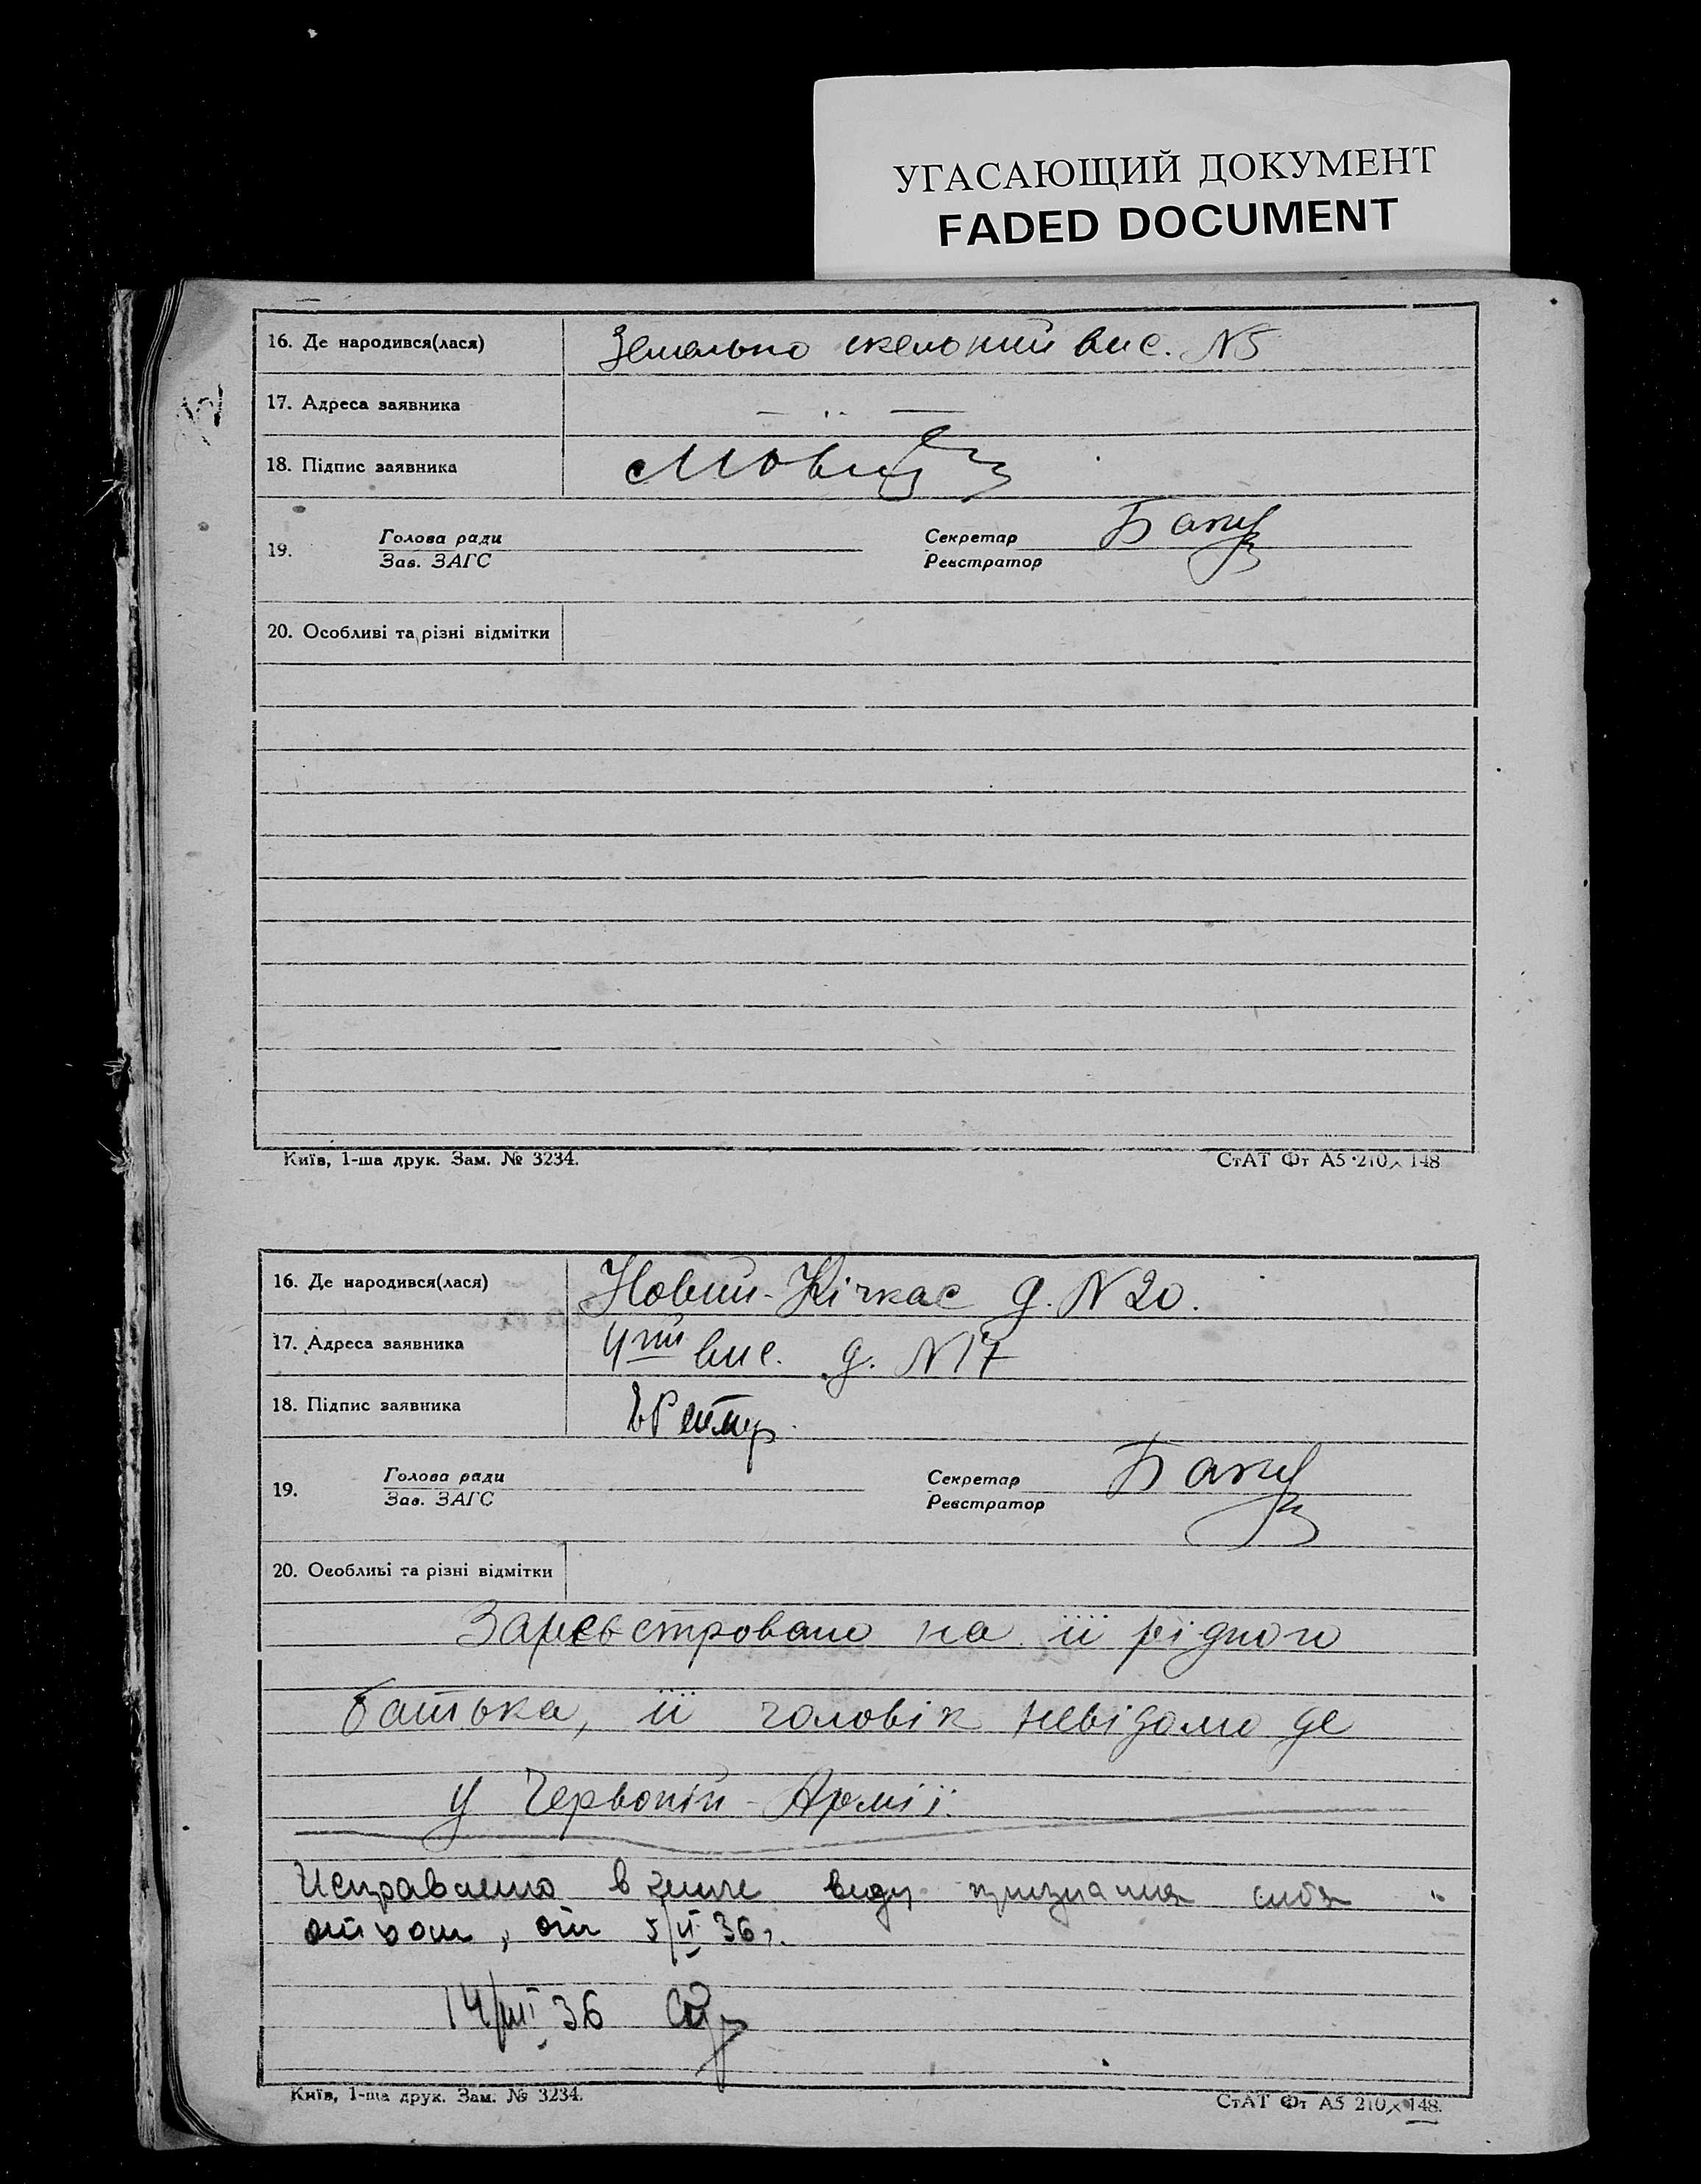 УГАСАЮЩИЙ ДОКУМЕНТ
FADED DOCUMENT
16. Де народився(лася) Земельно скельний вис. N5
17. Адреса заявника — ,, —
18. Підпис заявника
19. Голова ради Секретар
Зав. ЗАГС Реєстратор
20. Особливі та різні відмітки
Київ, 1-ша друк. Зам. № 3234. СтАТ Фт А5 210 × 148
16. Де народився(лася) Новий-Кічкас д. N20.
17. Адреса заявника 4тий вис. д. N17
18. Підпис заявника
19. Голова ради Секретар
Зав. ЗАГС Реєстратор
20. Особливі та різні відмітки
Зареєстровано на її рідного
батька, її чоловік невідомо де
у Червоній-Армії.
Исправлено в виду признания себя
отцом, от 5/II 36 г.
14/III 36
Київ, 1-ша друк. Зам. № 3234. СтАТ Фт А5 210 × 148.